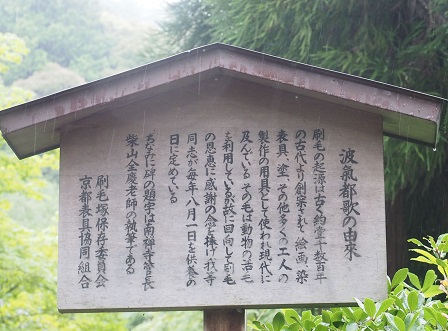 波氣都歌の由来
刷毛の起源は古く約壱千数百年
の古代より創案されて絵画、染
表具、塗、その他多くの工人の
製作の用具として使われ現代に
及んでいる その毛は動物の活毛
を利用している故に回向して刷毛
の恩恵に感謝の念を捧げ我等
同志が毎年八月一日を供養の
日に定めている
ちなみに碑の題字は南禅寺管長
柴山全慶老師の執筆である
刷毛塚保存委員会
京都表具協同組合